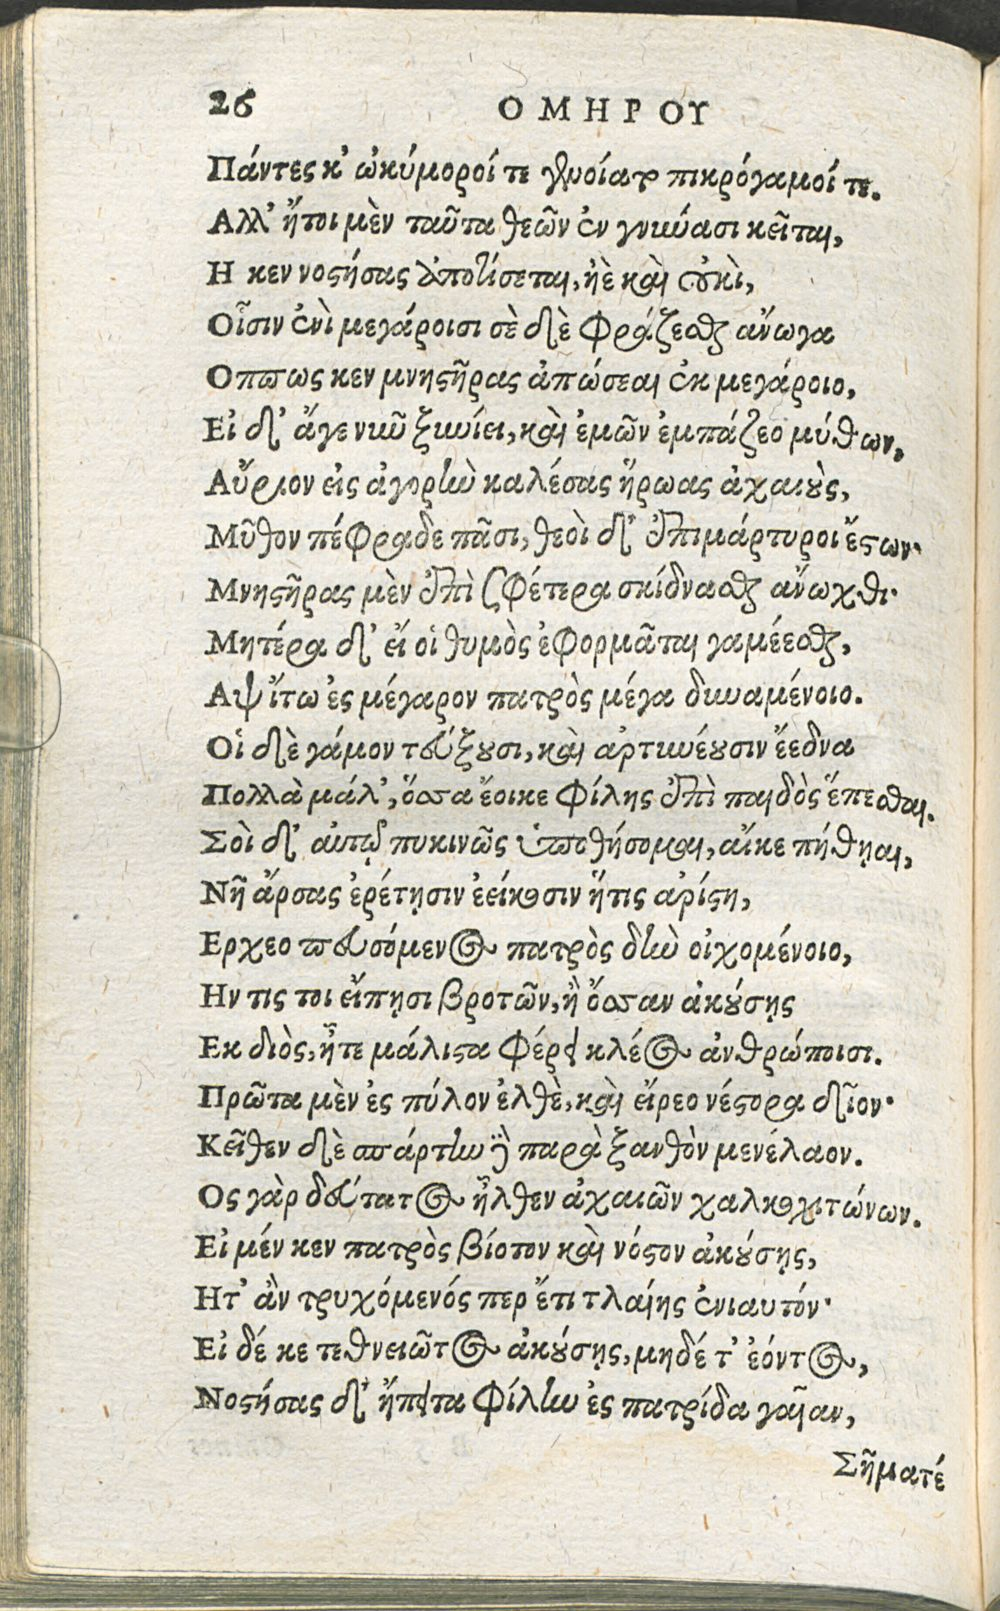 26 ΟΜΗΡΟΥ
Πάντες κ' ὠκύμοροί τε γενοίατο πικρόγαμοί τε.
Αλλ' ἤτοι μὲν ταῦτα θεῶν ἐν γούνασι κεῖται,
Η κεν νοστήσας ἀποτίσεται, ἠὲ καὶ οὐκὶ,
Οἷσιν ἐνὶ μεγάροισι σὲ δὲ φράζεσθαι ἄνωγα
Οππως κεν μνηστῆρας ἀπώσεαι ἐκ μεγάροιο,
Εἰ δ' ἄγε νῦν ξυνίει, καὶ ἐμῶν ἐμπάζεο μύθων,
Αὔριον εἰς ἀγορὴν καλέσας ἥρωας ἀχαιοὺς,
Μῦθον πέφραδε πᾶσι, θεοὶ δ' ἐπιμάρτυροι ἔστων·
Μνηστῆρας μὲν ἐπὶ σφέτερα σκίδνασθαι ἄνωχθι·
Μητέρα δ' εἴ οἱ θυμὸς ἐφορμᾶται γαμέεσθαι,
Αψ ἴτω ἐς μέγαρον πατρὸς μέγα δυναμένοιο.
Οἱ δὲ γάμον τεύξουσι, καὶ ἀρτυνέουσιν ἔεδνα
Πολλὰ μάλ', ὅσσα ἔοικε φίλης ἐπὶ παιδὸς ἕπεσθαι.
Σοὶ δ' αὐτῷ πυκινῶς ὑποθήσομαι, αἴκε πήθηαι,
Νῆ ἄρσας ἐρέτῃσιν ἐείκοσιν ἥτις ἀρίστη,
Ερχεο πευσόμενος πατρὸς δὴν οἰχομένοιο,
Ην τις τοι εἴπῃσι βροτῶν, ἢ ὄσσαν ἀκούσῃς
Εκ διὸς, ἥτε μάλιστα φέρει κλέος ἀνθρώποισι.
Πρῶτα μὲν ἐς πύλον ἐλθὲ, καὶ εἴρεο νέστορα δῖον·
Κεῖθεν δὲ σπάρτην γε παρὰ ξανθὸν μενέλαον.
Ος γὰρ δεύτατος ἦλθεν ἀχαιῶν χαλκοχιτώνων.
Εἰ μέν κεν πατρὸς βίοτον καὶ νόστον ἀκούσῃς,
Ητ' ἂν τρυχόμενός περ ἔτι τλαίης ἐνιαυτόν·
Εἰ δέ κε τεθνειῶτος ἀκούσῃς, μηδέ τ' ἐόντος,
Νοστήσας δ' ἤπειτα φίλην ἐς πατρίδα γαῖαν,
Σῆματέ